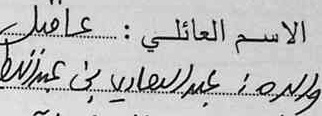 الاسم العائلي : عاقيل
والده : عبد الهادي بن عبد